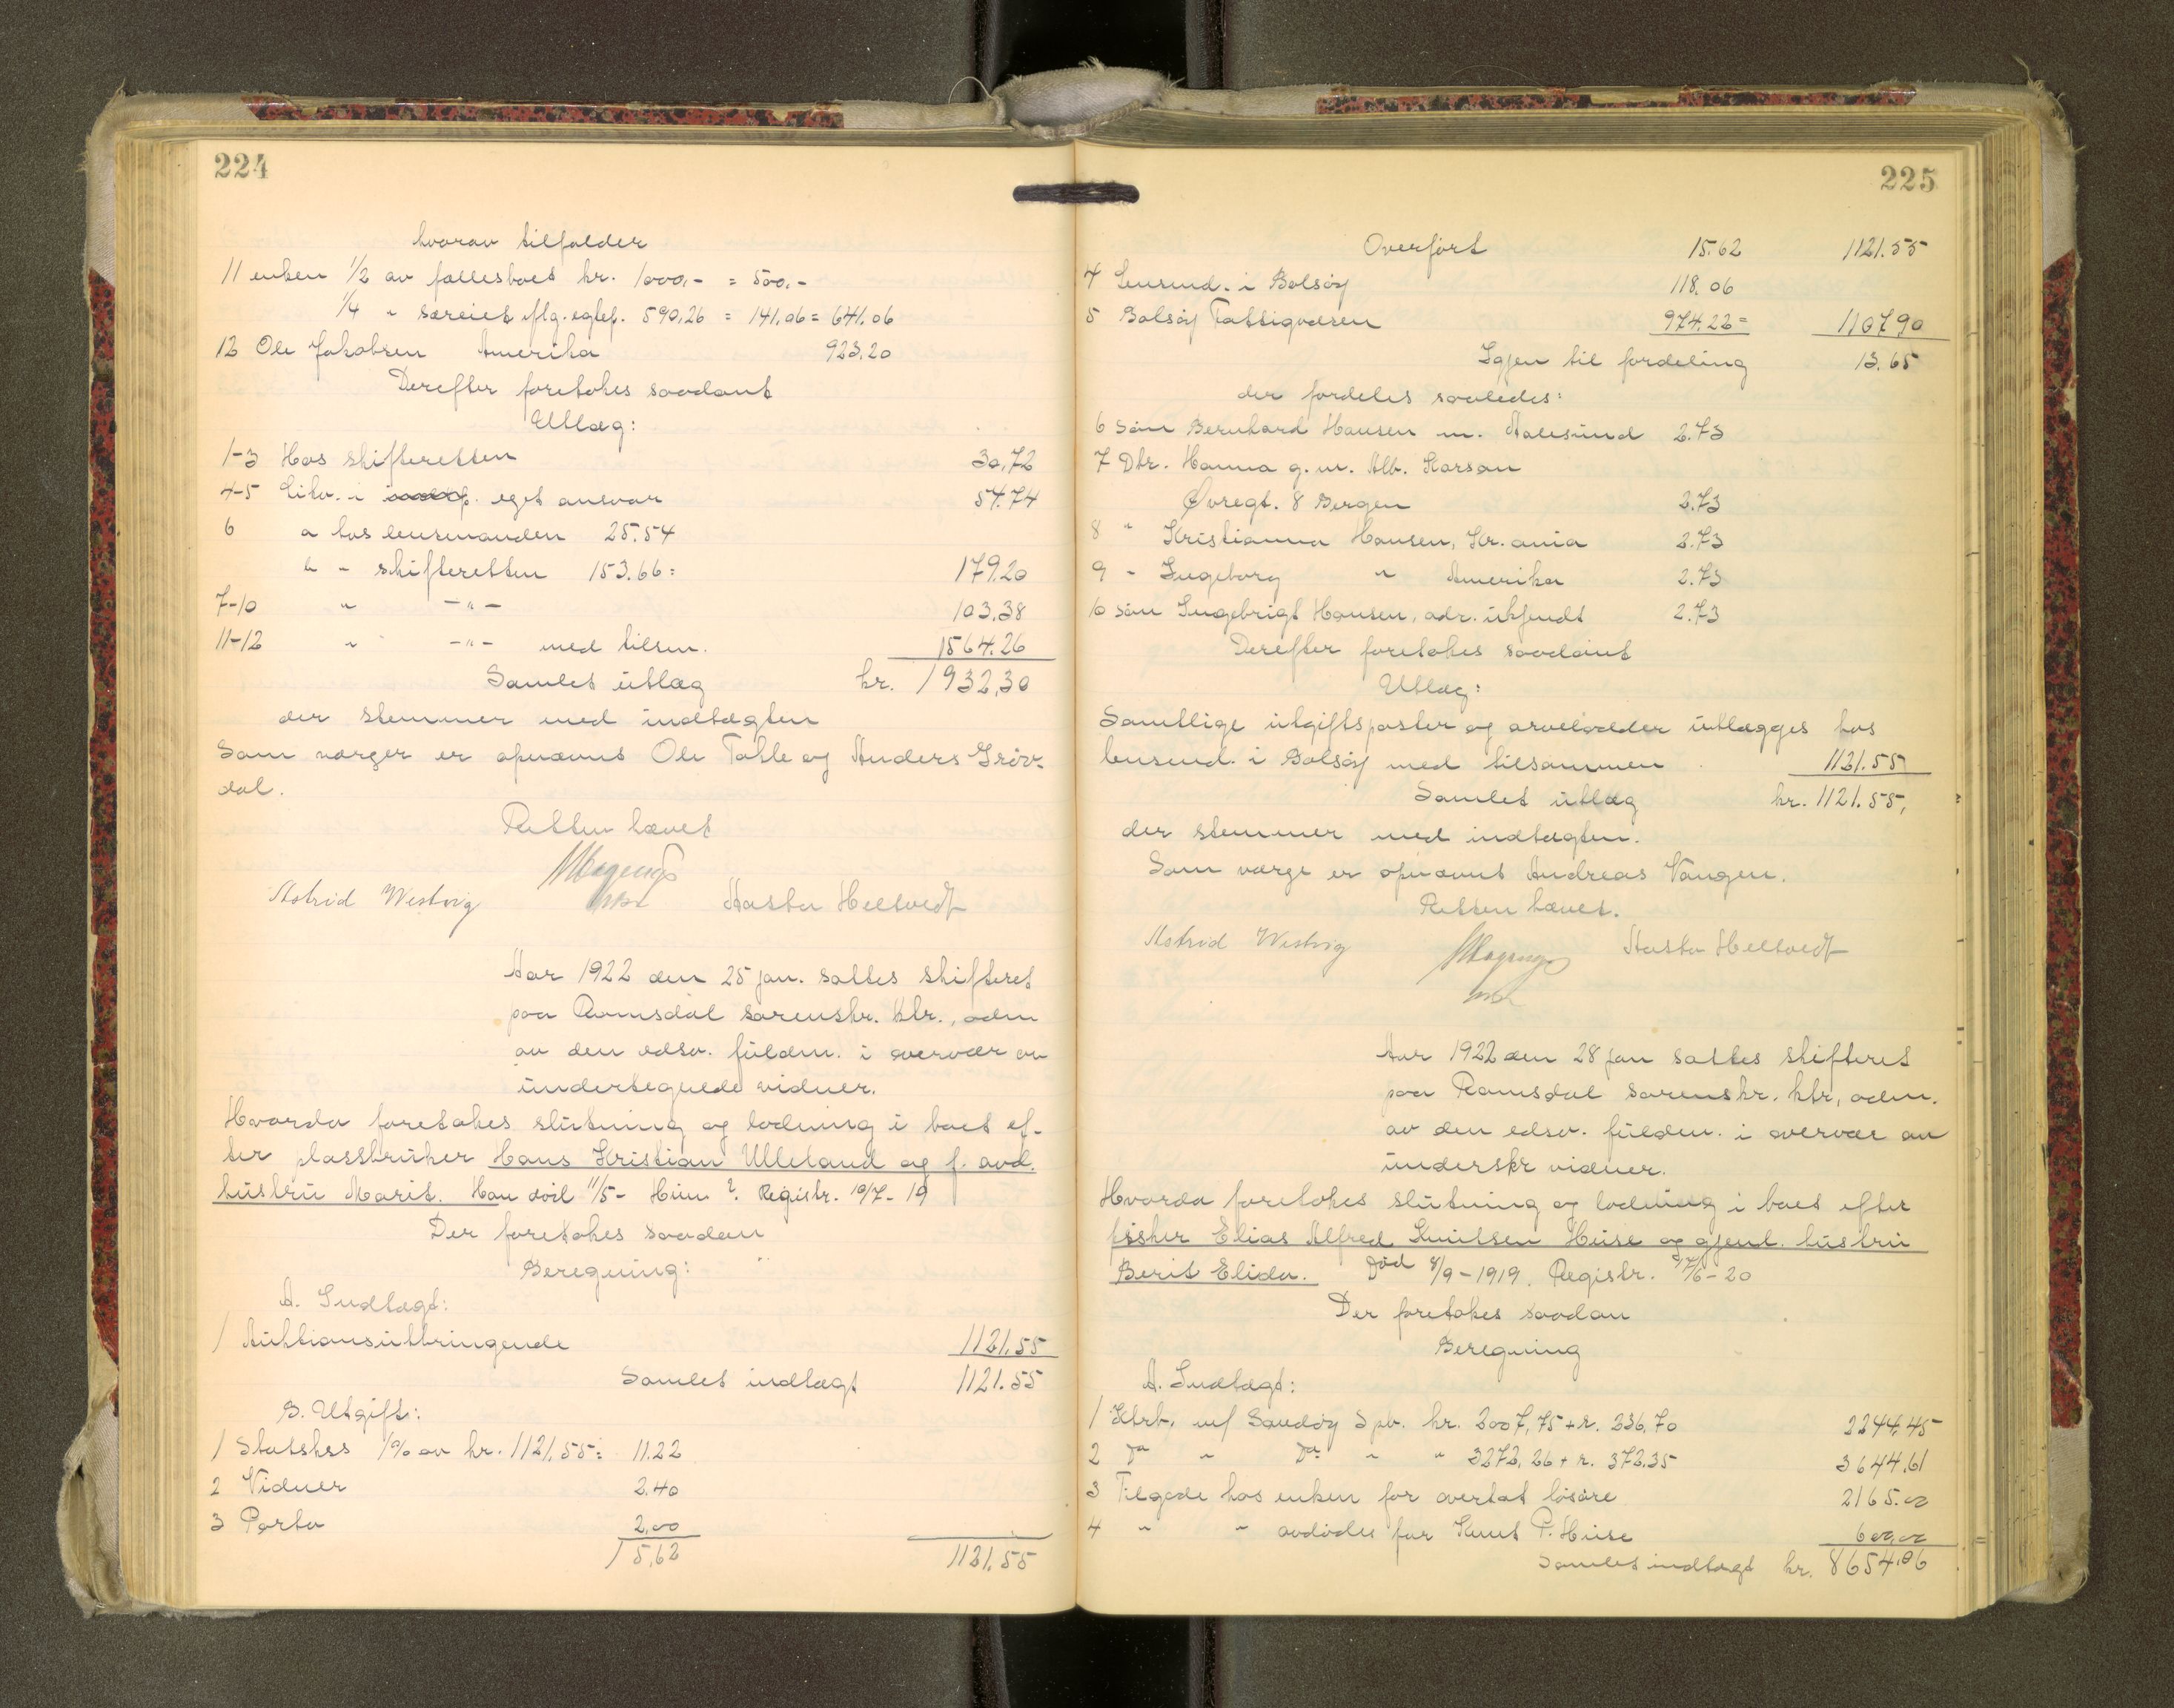 224
hvorav tilfalder
11 enken 1/2 av fællesboet kr. 1000,- = 500,-
1/4 " særeiet iflg. egtef. 590,26 = 141,06 = 641.06
12 Ole Jakobsen Amerika 923.20
Derefter foretokes saadant
Utlæg:
1-3 Hos skifteretten 30,72
4-5 Likv. i eget ansvar 54.74
6 a hos lensmanden 25.54
b - skifteretten 153.66 = 179.20
7-10 " -"- 103,38
11-12 " -"- med tilsm. 1564.26
Samlet utlæg kr. 1932,30
der stemmer med indtægten
Som værger er opnævnt Ole Tokle og Anders Grøv-
dal.
Retten hævet
Astrid Westvig Aasta Heltvedt
Aar 1922 den 25 jan. sattes skifteret
paa Romsdal sorenskr. ktr., adm
av den edsv. fuldm. i overvær av
undertegnede vidner.
Hvorda foretokes slutning og lodning i boet ef-
ter plassbruker Hans Kristian Ulleland og f. avd.
hustru Marit. Han død 11/5 - Hun ? Registr. 10/7-19
Der foretokes saadan
Beregning:
A. Indtægt:
1 Auktionsutbringende 1121.55
Samlet indtægt 1121.55
B. Utgift:
1 Statskss 1% av kr. 1121,55 = 11.22
2 Vidner 2.40
3 Porto 2,00
15,62 1121.55
225
Overført 15.62 1121.55
4 Lensmd. i Bolsøy 118.06
5 Bolsøy Fattigvæsen 974.22 = 1107.90
Igjen til fordeling 13.65
der fordeles saaledes:
6 Søn Bernhard Hansen m. Aalesund 2.73
7 Dtr. Hanna g.m. Alb. Karson
Øvregt. 8 Bergen 2.73
8 " Kristianna Hansen, Kr.ania 2.73
9 - Ingeborg " Amerika 2.73
10 Søn Ingebrigt Hansen, adr. ukjendt 2.73
Derefter foretokes saadant
Utlæg:
Samtlige utgiftsposter og arvelodder utlægges hos
lensmd. i Bolsøy med tilsammen 1121.55
Samlet utlæg kr. 1121.55,
der stemmer med indtægten.
Som værge er opnævnt Andreas Vangen.
Retten hævet.
Astrid Westvig Aasta Heltvedt
Aar 1922 den 28 jan sattes skifteret
paa Romsdal sorenskr. ktr, adm.
av den edsv. fuldm. i overvær av
underskr vidner.
Hvorda foretokes slutning og lodning i boet efter
fisker Elias Alfred Knutsen Huse og gjenl. hustru
Berit Elida. Død 8/9-1919. Registr. 17/6-20
Der foretokes saadan
Beregning
A. Indtægt:
1 Ktrb. m/ Sandøy Spb. kr. 2007,75 + r. 236,70 2244.45
2 Do " Do " " 3272,26 + r. 372.35 3644.61
3 Tilgode hos enken for overtat løsøre 2165.00
4 " " avdødes far Knut P. Huse 600,00
Samlet indtægt kr. 8654.06